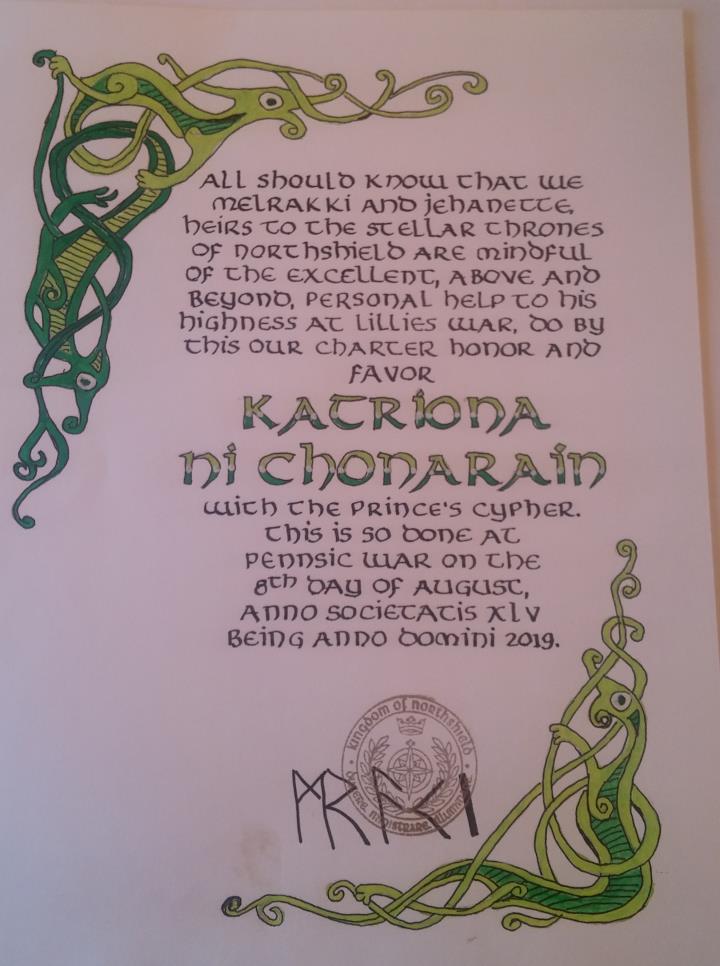 All should know that we
Melrakki and Jehanette,
heirs to the stellar thrones
of Northshield are mindful
of the excellent, above and
beyond, personal help to his
highness at Lillies War, do by
this our charter honor and
favor
Katriona
ni Chonarain
with the Prince's Cypher.
This is so done at
Pennsic War on the
8th day of August,
Anno Societatis XLV
being Anno Domini 2019.
Kingdom of Northshield
ᛗᚱᚨᚲᛁ